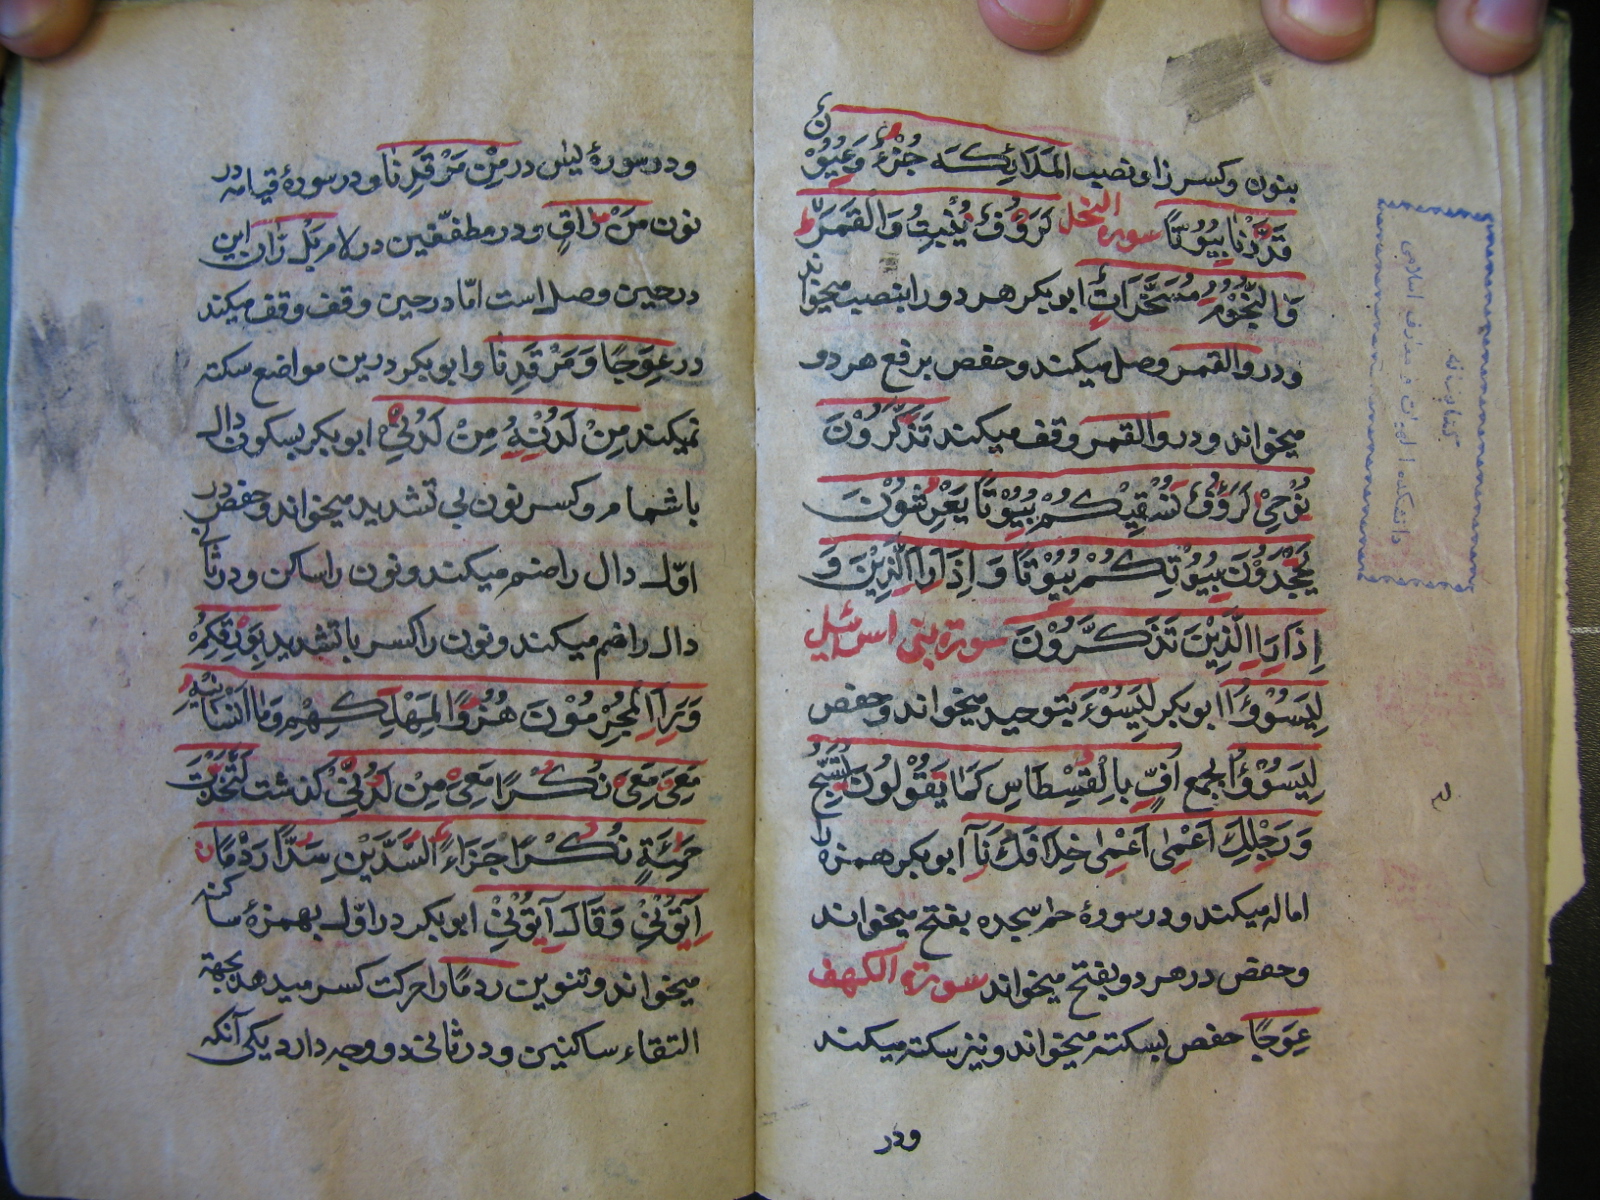 بنون و کسر زا و نصب المَلَائِکَه جُزْءٌ وَعُیُوْنٌ
قَدَّرْنَا بُیُوْتًا سورة النحل لَرَؤُفٌ یُنْبِتُ وَالْقَمَرَ
وَالنُّجُوْمُ مُسَخَّرَاتٌ ابو بکر هر دو را بنصب میخواند
و در والقمر وصل میکند و حفص برفع هر دو
میخواند و در والقمر وقف میکند تَذَکَّرُوْنَ
نُوْحِیْ لَرَؤُفٌ نُسْقِیْکُمْ بُیُوْتًا یَعْرِشُوْنَ
یَجْحَدُوْنَ بُیُوْتِکُمْ بُیُوْتًا وَ اِذَا رَاَ الَّذِیْنَ وَ
اِذَا رَاَ الَّذِیْنَ تَذَکَّرُوْنَ سورة بنی اسرائیل
لِیَسُوْؤُا ابو بکر لِیَسُوْءَ بتوحید میخواند و حفص
لِیَسُوْؤُا بجمع اُفٍّ بِالْقِسْطَاسِ کَمَا یَقُوْلُونَ تُسَبِّحُ
وَرَجْلِکَ اَعْمٰی اَعْمٰی خِلَافَکَ نَآ ابو بکر همزه را
اماله میکند و در سورهٔ حم سجده بفتح میخواند
و حفص در هر دو بفتح میخواند سورة الکهف
عِوَجًا حفص بسکته میخواند و نیز سکته میکند
ودر
و در سورهٔ یس در مِنْ مَرْقَدِنَا و در سورهٔ قیامه در
نون مَنْ رَاقٍ و در مطفّفین در لام بَلْ رَانَ این
در حین وصل است امّا در حین وقف وقف میکند
در عِوَجًا وَمَرْقَدِنَا و ابو بکر درین مواضع سکته
نمیکند مِنْ لَدُنْهُ مِنْ لَدُنِّیْ ابو بکر بسکون دال
با شمام و کسر نون بی تشدید میخواند و حفص در
اوّل دال را ضم میکند و نون را ساکن و در ثانی
دال را ضم میکند و نون را کسر با تشدید بِوَرِقِکُمْ
وَرَاَ الْمُجْرِمُوْنَ هُزُوًا لِمَهْلِکِهِمْ وَمَا اَنْسَانِیْهُ
مَعِیَ مَعِیَ نُکْرًا مَعِیَ مِنْ لَدُنِّیْ گذشت لَتَّخَذْتَ
حَمِئَةٍ نُکْرًا جَزَاءً السَّدَّیْنِ سَدًّا رَدْمًا
اٰتُوْنِیْ وَ قَالَ اٰتُوْنِیْ ابو بکر در اوّل بهمزهٔ ساکن
میخواند و تنوین ردمًا را حرکت کسر میدهد بجهة
التقاء ساکنین و در ثانی دو وجه دارد یکی آنکه
کتابخانه
دانشکده الهیات و معارف اسلامی